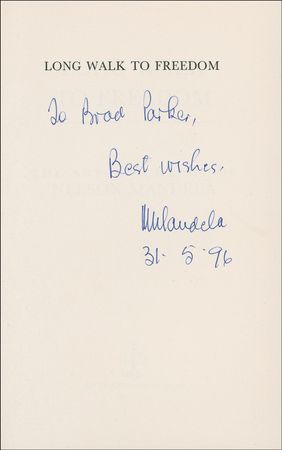 LONG WALK TO FREEDOM
To Brad Parker,
Best wishes.
NMandela
31· 5· 96